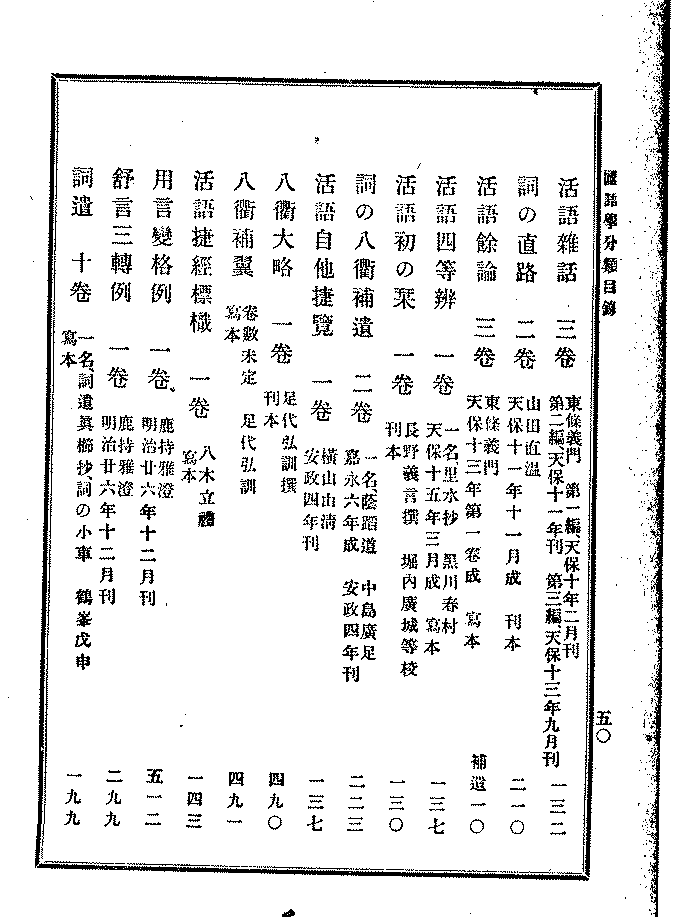 國語學分類目錄
五〇
活語雜話 三卷 東條義門 第一編天保十年二月刊
第二編天保十一年刊 第三編、天保十三年九月刊 一三二
詞の直路 二卷 山田直溫
天保十一年十一月成 刊本 二一〇
活語餘論 三卷 東條義門
天保十三年第一卷成 寫本 補遺一〇
活語四等辨 一卷 一名里水抄 黑川春村
天保十五年三月成 寫本 一三七
活語初の栞 一卷 長野義言撰 堀內廣城等校
刊本 一三〇
詞の八衢補遺 二卷 一名蔭蹈道 中島廣足
嘉永六年成 安政四年刊 二二三
活語自他捷覽 一卷 橫山由淸
安政四年刊 一三七
八衢大略 一卷 足代弘訓撰
刊本 四九〇
八衢補翼 卷數未定 足代弘訓
寫本 四九一
活語捷經標幟 一卷 八木立禮
寫本 一四三
用言變格例 一卷 鹿持雅澄
明治廿六年十二月刊 五一二
舒言三轉例 一卷 鹿持雅澄
明治廿六年十二月刊 二九九
詞遺 十卷 一名、詞遺眞櫛抄、詞の小車 鶴峯戊申
寫本 一九九